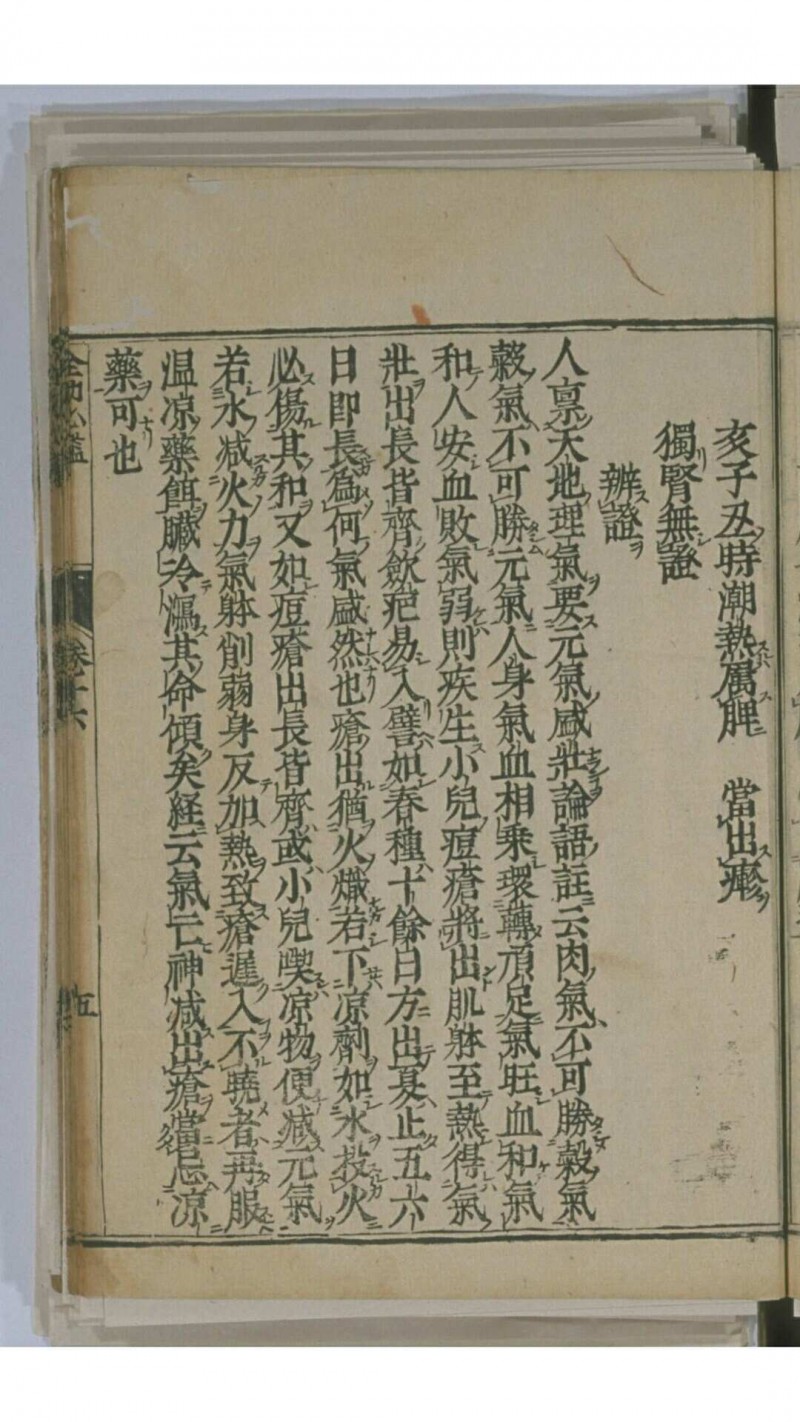 亥子丑時潮熱屬脾　當出瘮
獨腎無證
辨證
人禀天地理氣要元氣盛壯論語註云肉氣不可勝穀氣
穀氣不可勝元氣人身氣血相乘環轉頂足氣旺血和氣
和人安血敗氣弱則疾生小兒痘瘡將出肌躰至熱得氣
壯出長皆齊飲疤易入譬如春種十餘日方出夏止五六
日即長爲何氣盛然也瘡出猶火熾若下凉劑如水投火
必傷其和又如痘瘡出長皆齊或小兒喫凉物便减元氣
若水减火力氣躰削弱身反加熱致瘡遲入不曉者再服
温凉藥餌臟冷瀉其命傾矣経云氣亡神减出瘡當忌凉
藥可也
卷十六
五